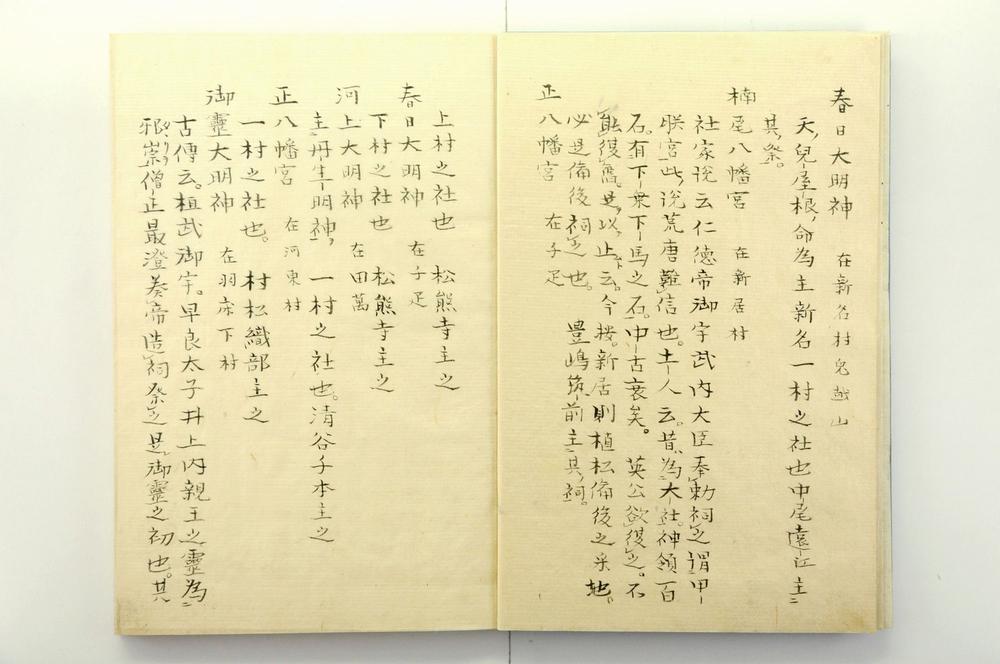 春日大明神 在新名村兒越山
天兒屋根命為主新名一村之社也中尾遠江主
其祭。
楠尾八幡宮 在新居村
社家説云仁德帝御宇武内大臣奉勅祠之謂甲
朕宮此説荒唐難信也。土人云。昔為大社。神領百
石。有下乗下馬之石。中古衰矣。英公欲復之。不
能復舊。是以止云。今按。新居則植松備後之采地。
必是備後祠之也。 豊嶋筑前主其祠。
正八幡宮 在子疋
上村之社也 松熊寺主之
春日大明神 在子疋
下村之社也 松熊寺主之
河上大明神 在田萬
主丹生明神，一村之社也。清谷子本主之
正八幡宮 在河東村
一村之社也。 村松織部主之
御靈大明神 在羽床下村
古傳云。桓武御宇。早良太子井上内親王之靈為
邪崇僧正最澄奏帝造祠祭之是御靈之初也。其